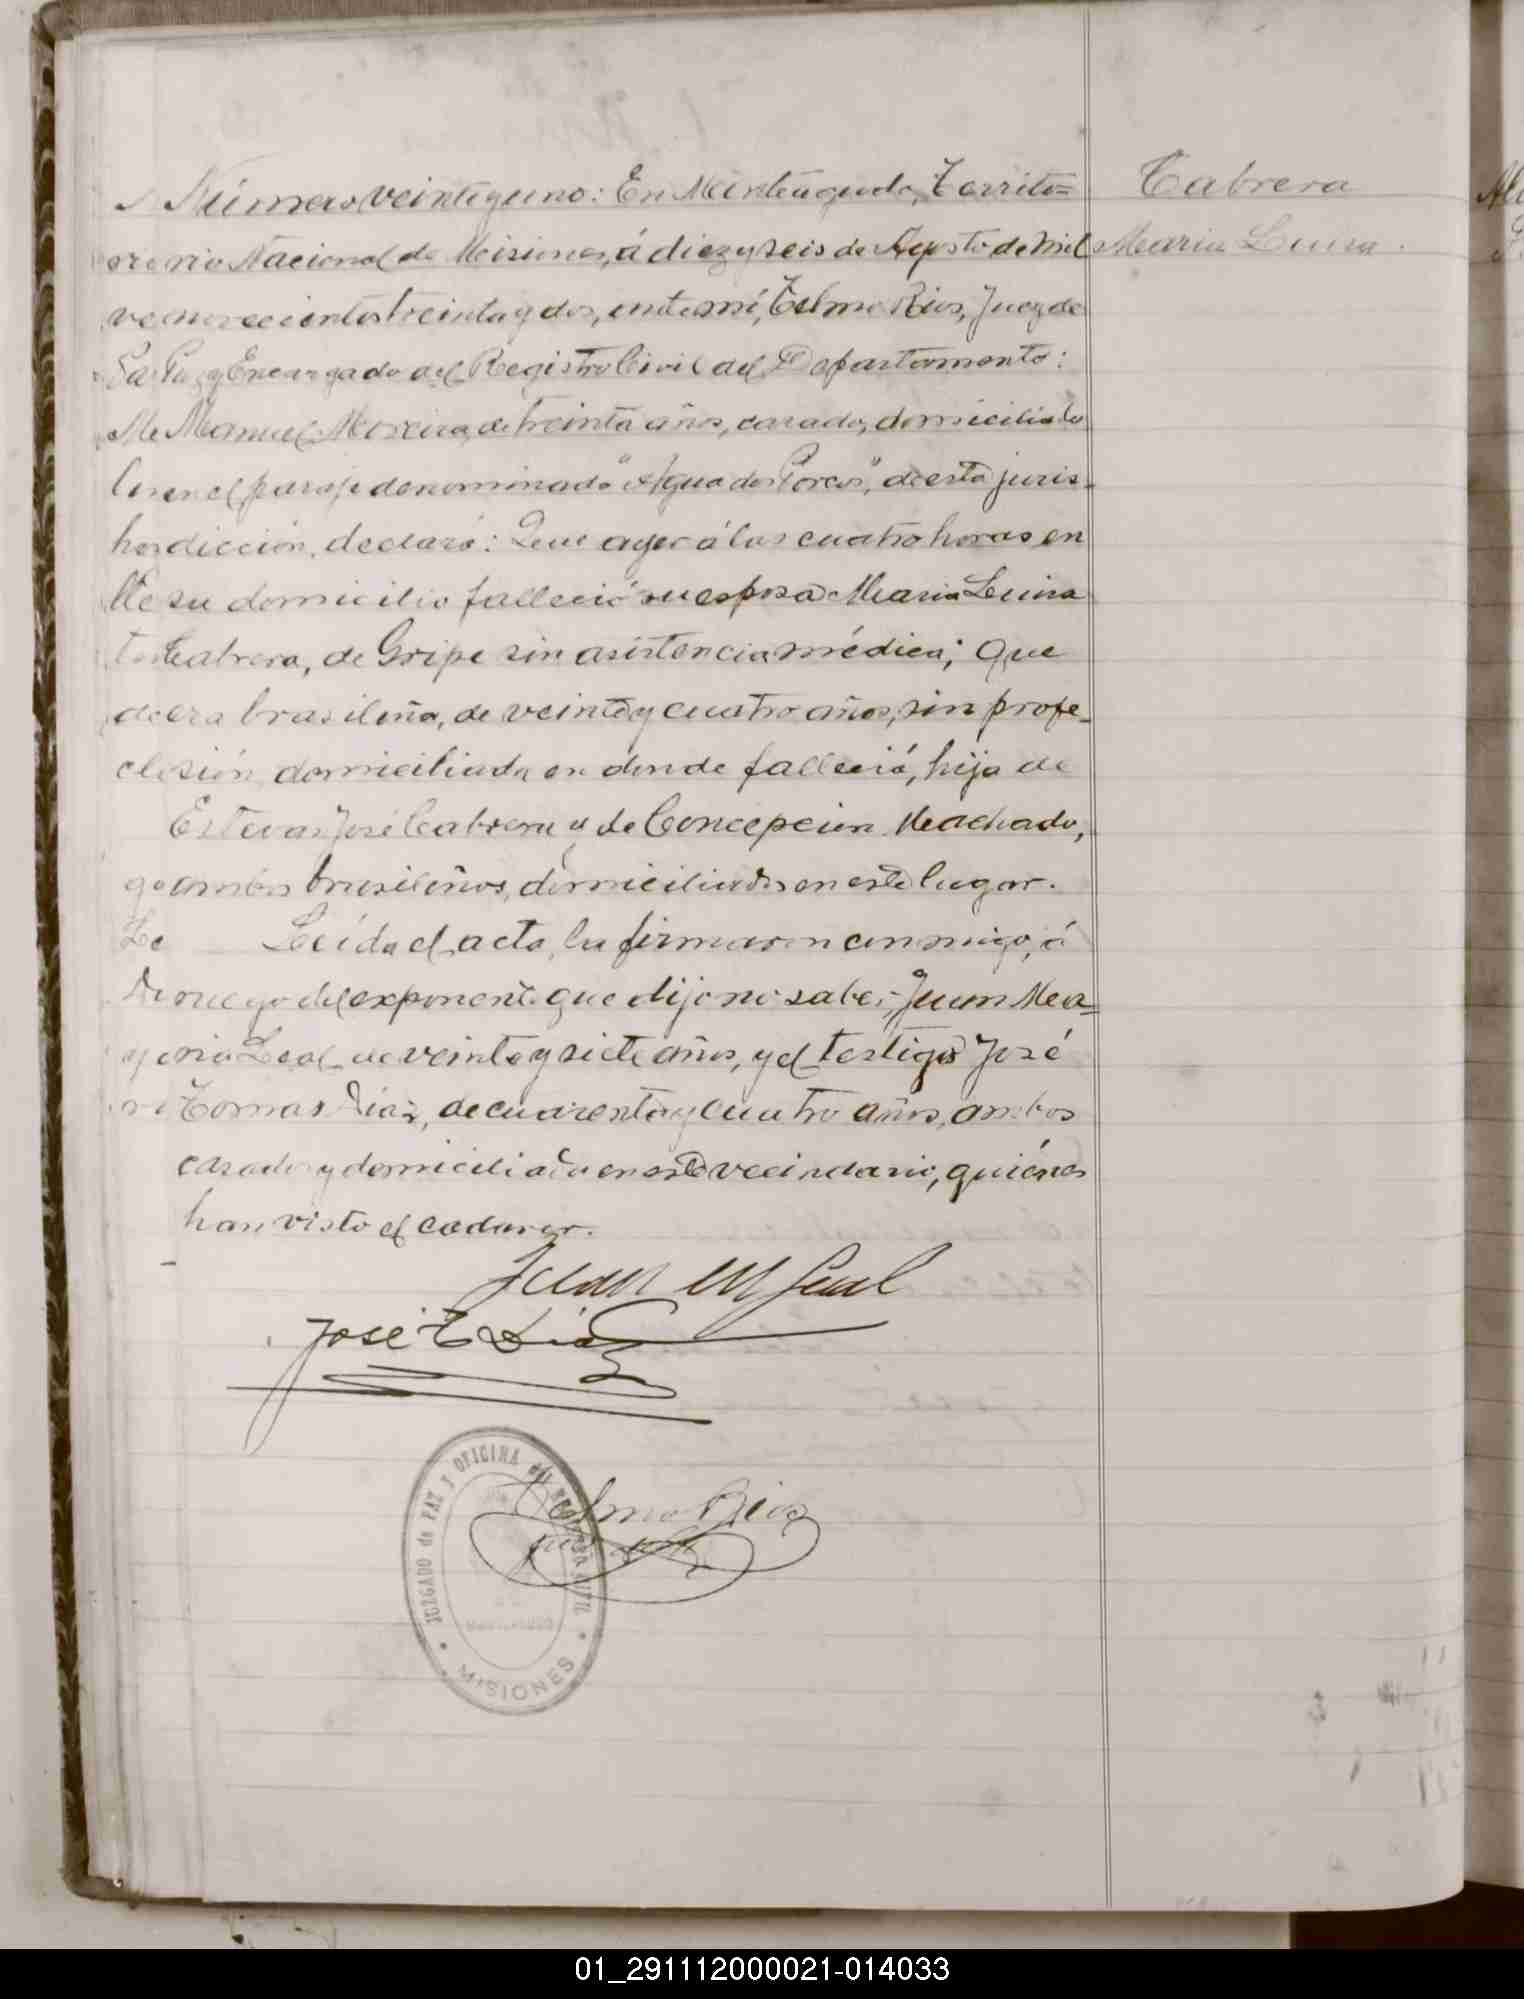 Número veintiyuno: En Monteagudo, Territo=
rio Nacional de Misiones, á diez y seis de Agosto de mil
novecientos treinta y dos, ante mí, Telmo Rios, Juez de
Paz y Encargado del Registro Civil del Departamento:
Manuel Moreira, de treinta años, casado, domiciliado
en el paraje denominado "Agua dos Porcos", de esta juris-
dicción, declaró: Que ayer á las cuatro horas en
su domicilio falleció su esposa Maria Luisa
Cabrera, de Gripe sin asistencia médica; que
era brasileña, de veinte y cuatro años, sin profe-
sión, domiciliada en donde falleció, hija de
Estevan José Cabrera y de Concepcion Machado,
ambos brasileños, domiciliados en este lugar.
Leída el acta, la firmaron conmigo, á
ruego del exponente que dijo no saber, Juan Ma-
ria Leal de veinte y siete años, y el testigo José
Tomas Diaz, de cuarenta y cuatro años, ambos
casados y domiciliados en este vecindario, quiénes
han visto el cadaver.
Juan M Leal
José T Diaz
Telmo Rios
JUZGADO de PAZ Y OFICINA del REGISTRO CIVIL
MISIONES
Cabrera
Maria Luisa
01_291112000021-014033